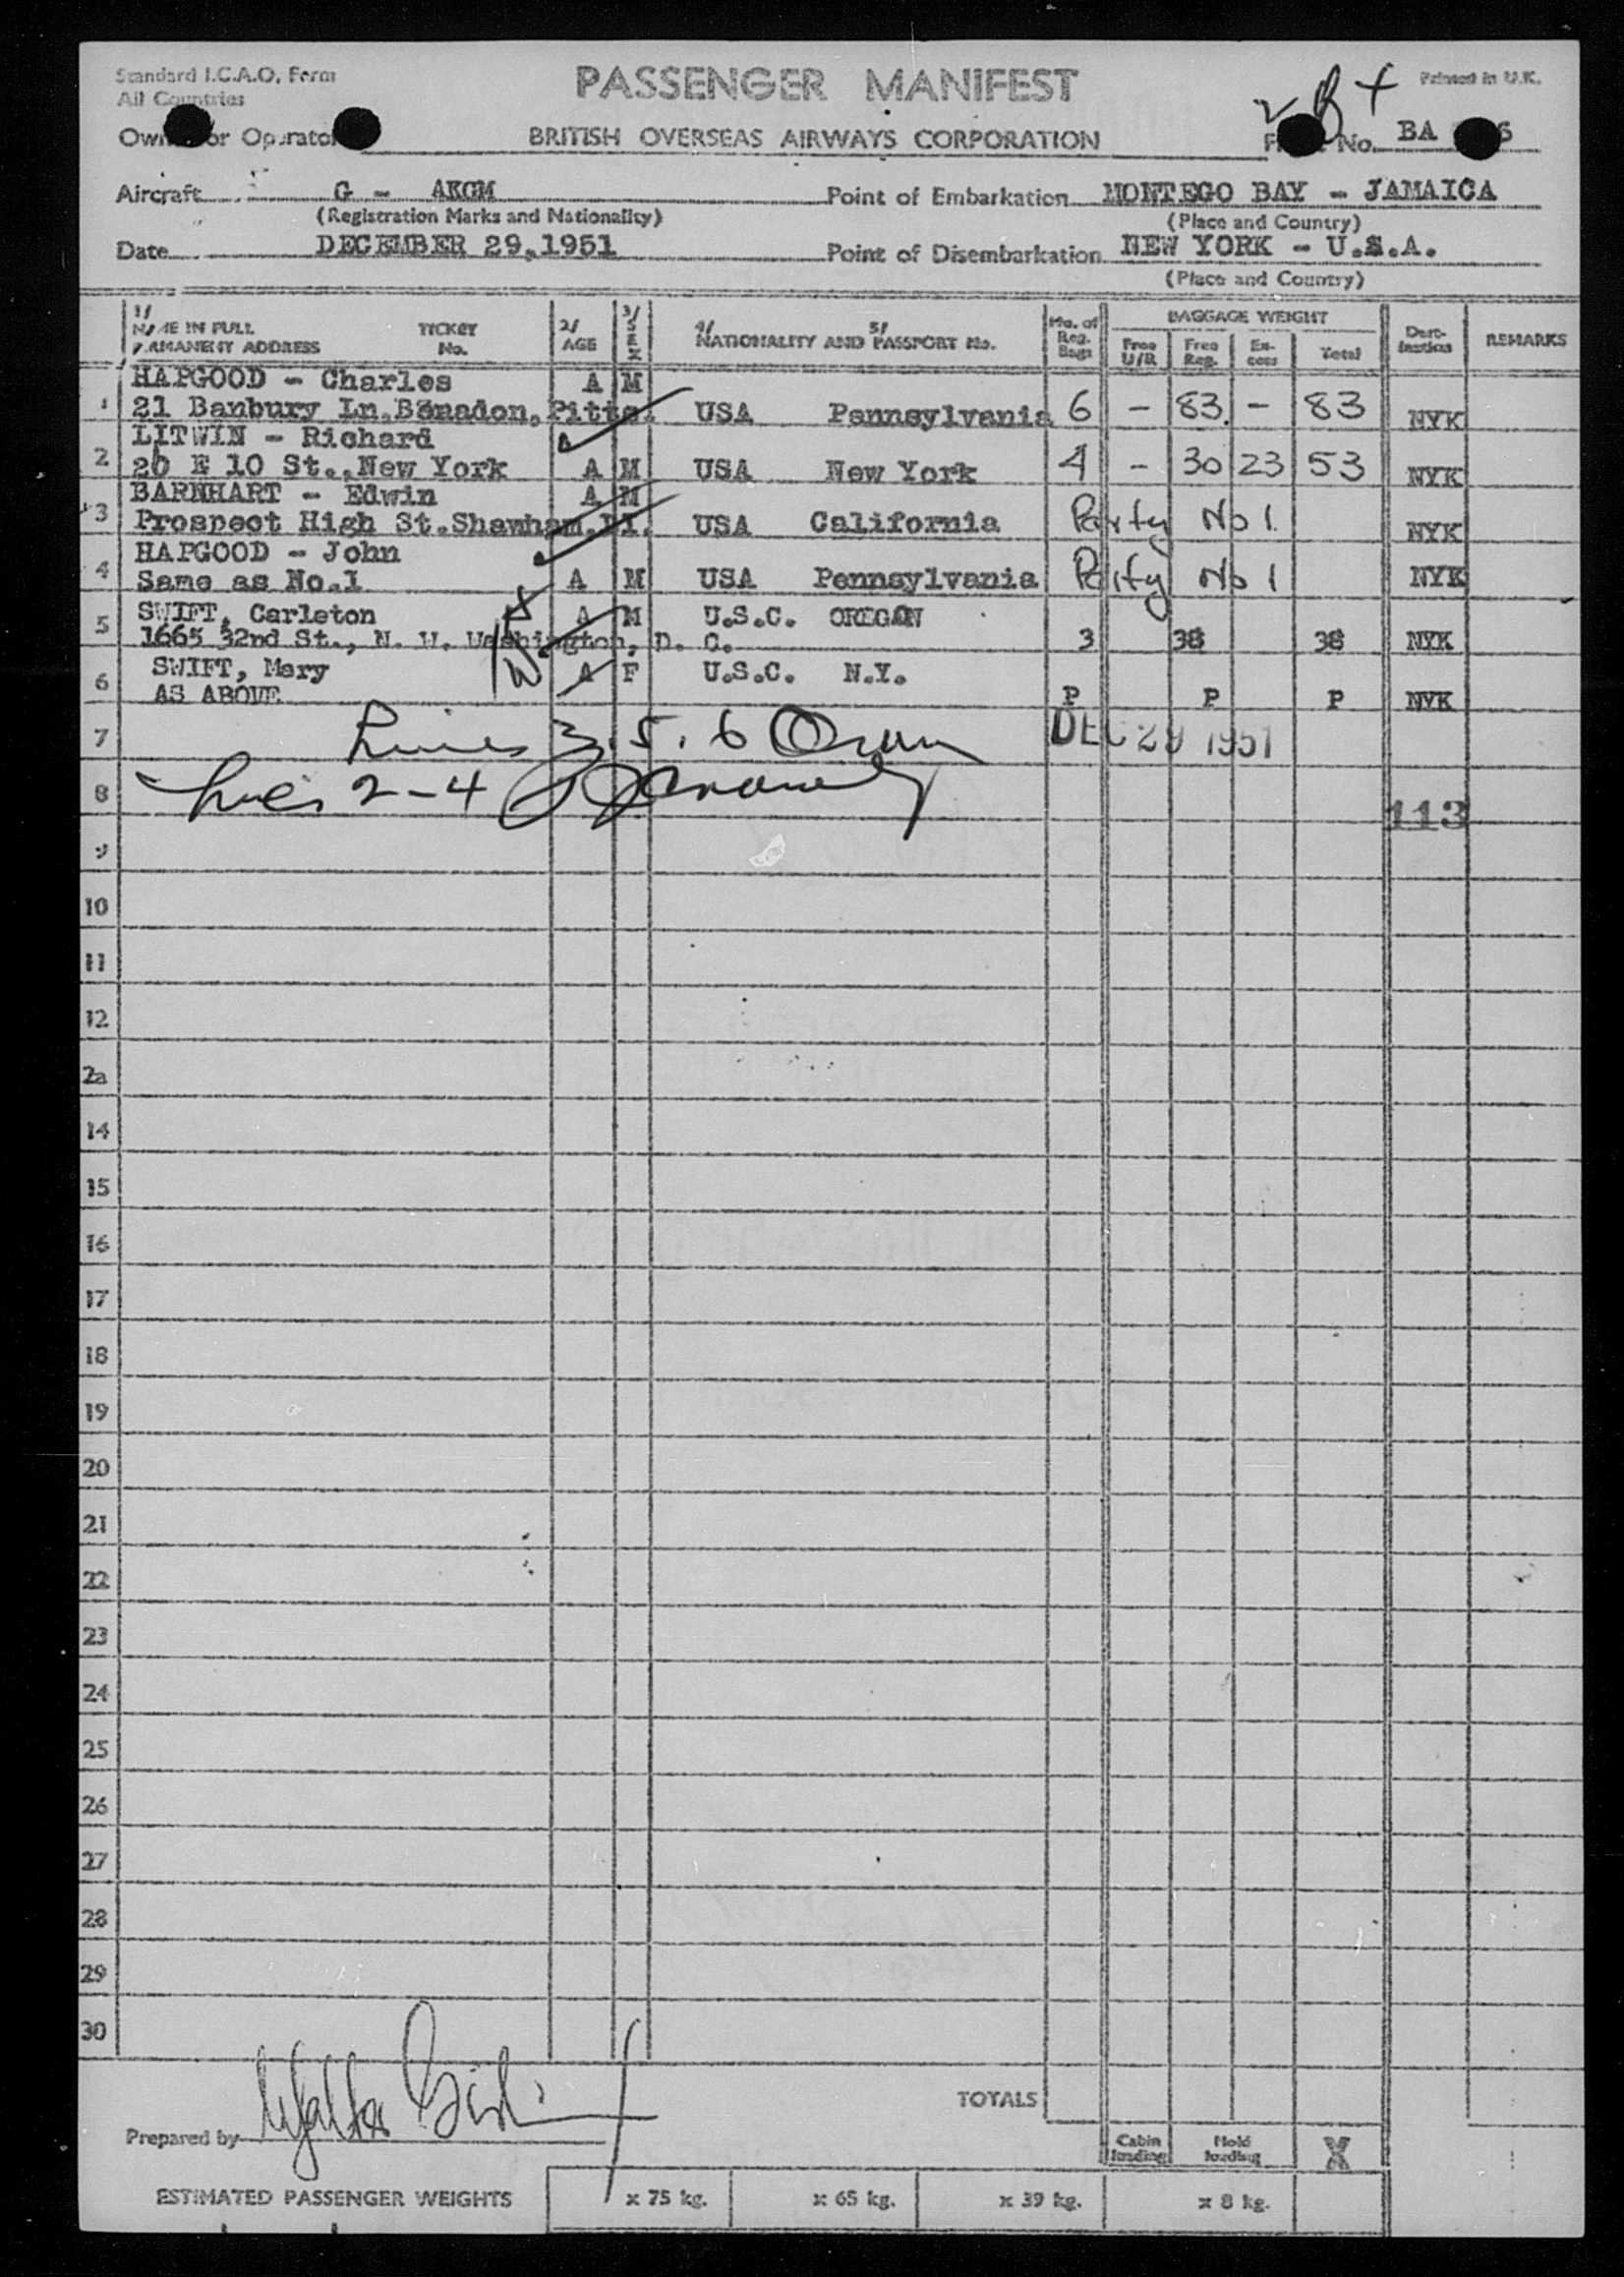 Standard I.C.A.O. Form
All Countries
PASSENGER MANIFEST
Printed in U.K.
or BRITISH OVERSEAS AIRWAYS CORPORATION
No. BA
Aircraft G - AKGM
(Registration Marks and Nationality)
Point of Embarkation MONTEGO BAY - JAMAICA
(Place and Country)
Date DECEMBER 29,1951
Point of Disembarkation NEW YORK - U.S.A.
(Place and Country)
1/ NAME IN FULL PERMANENT ADDRESS TICKET No. 2/ AGE 3/ SEX 4/ NATIONALITY AND 5/ PASSPORT No. No. of Reg. Bags BAGGAGE WEIGHT Free U/R Free Reg. Ex- cess Total Dest- ination REMARKS
HAPGOOD - Charles A M
1 21 Banbury Ln. Pitts. USA Pennsylvania 6 - 83 - 83 NYK
LITWIN - Richard
2 20 E 10 St., New York A M USA New York 4 - 30 23 53 NYK
BARNHART - Edwin A M
3 Prospect High St. USA California Party No 1. NYK
HAPGOOD - John
4 Same as No.1 A M USA Pennsylvania Party No 1 NYK
SWIFT, Carleton A M U.S.C. OREGAN
5 1665 32nd St., N. W. Washington, D. C. 3 38 38 NYK
SWIFT, Mary A F U.S.C. N.Y.
6 AS ABOVE P P P NYK
7 Lines 3.5.6 DEC 29 1951
8 Lines 2-4
113
9
10
11
12
2a
14
15
16
17
18
19
20
21
22
23
24
25
26
27
28
29
30
TOTALS
Prepared by
Cabin loading Hold loading X
ESTIMATED PASSENGER WEIGHTS x 75 kg. x 65 kg. x 39 kg. x 8 kg.